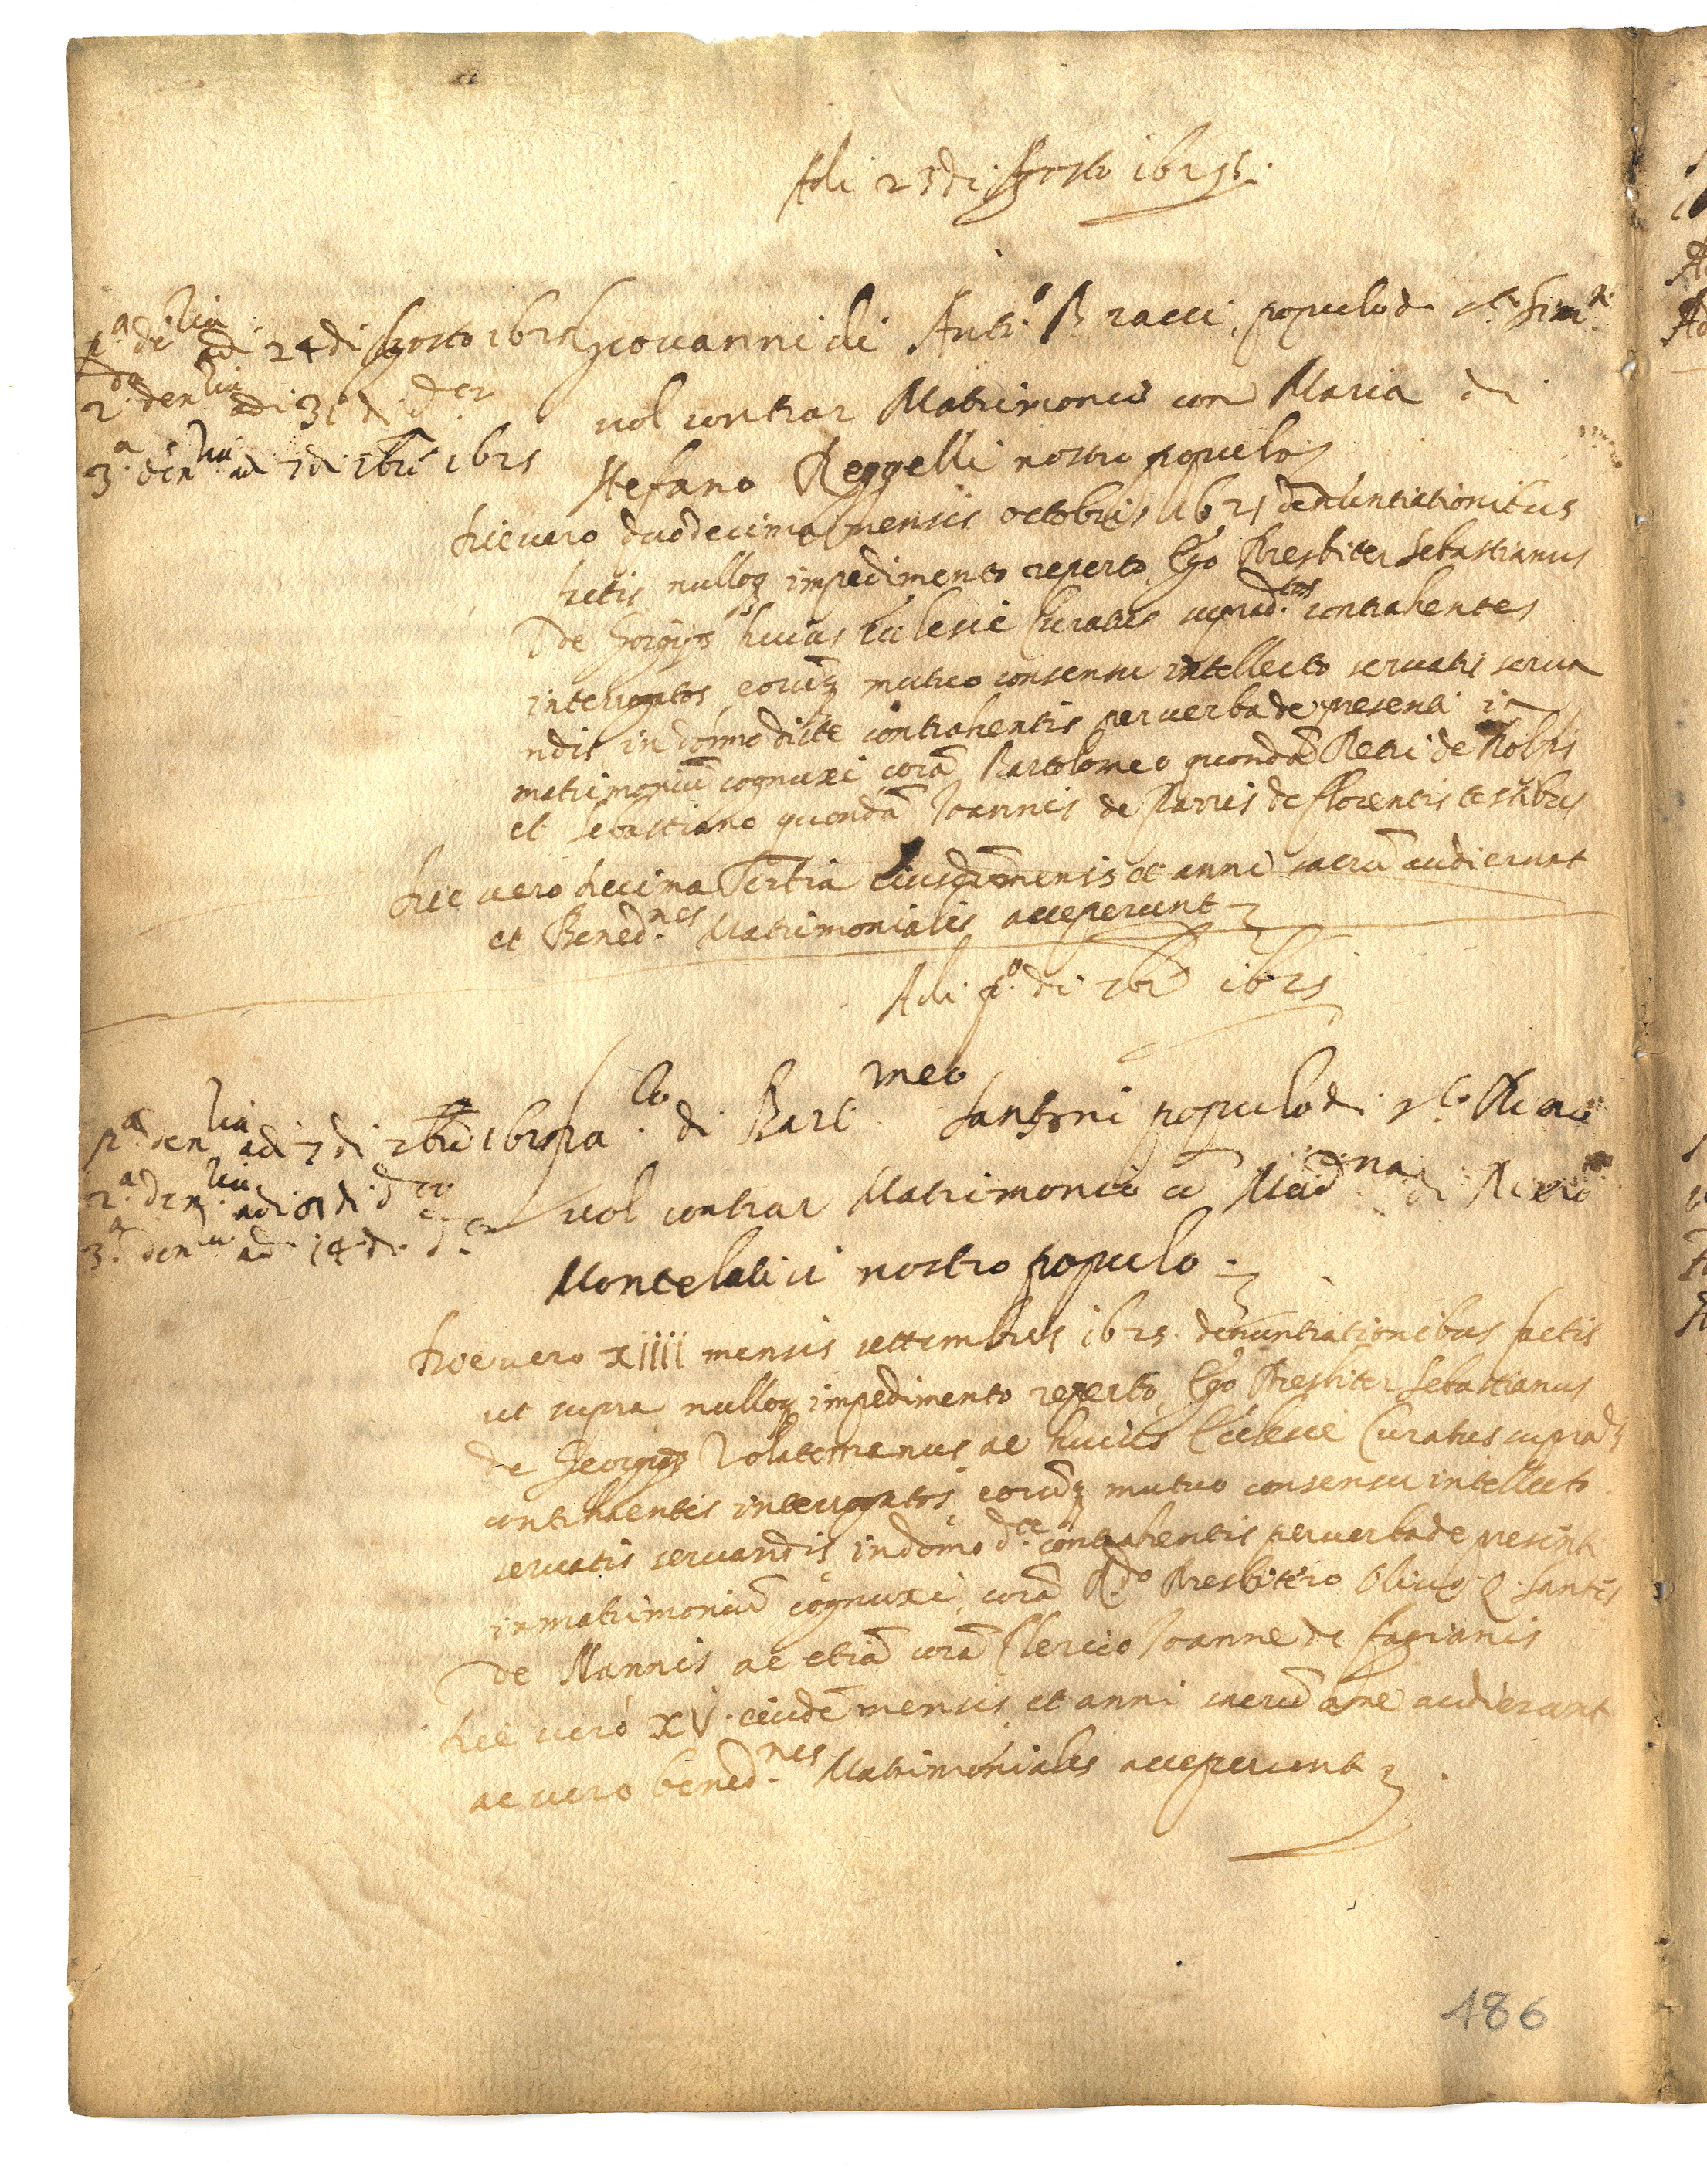 Adi 23 di Agosto 1625.
pa. den.tia adi 24 di Agosto 1625
2da. den.tia adi 31 di d.er
3a. den.tia adi 7 di 7bre 1625
Giovanni di Anto. Bracci, populo di sto. Sim.e
vol contrar Matrimonio con Maria di
Stefano Reggelli nostro populo
hic vero duodecima mensis octobris 1625 denuntiationibus
factis nulloq impedimento reperto Ego Presbiter Sebastianus
de Georgys huius Ecclesie Curatus suprad.tos contrahentes
interrogatos eorumq mutuo consensu intellecto servatis serva
ndis in domo dicte contrahentis per verba de presenti in
matrimoniū cognuxi corā Bartolomeo quondā Petri de Nobis
et Sebastiano quondā Joannis de Parris de florentis testibus
hic vero decima Tertia eiusdē mensis et anni sacrū audierunt
et Bened.nes Matrimonialis acceperunt
Adi po. di 7bre 1625
pa. den.tia adi 7 di 7bre 1625
2a. den.tia adi 8 di d.er
3a. den.tia adi 14 di d.er
Pa.lo di Bart.meo Santini populo di sto.
vol contrar Matrimonio cō Mad.na di Piero
Montelatici nostro populo
hoc vero xiiii mensis settembris 1625. denuntiationibus factis
ut supra nulloq impedimento reperto, Ego Presbiter Sebastianus
de Georgys Volaterranus ac huius Ecclesie Curatus suprad
contrhaentes interrogatos eorumq mutuo consensu intellecto
servatis servandis in domo d.te contrahentis per verba de present
in matrimoniū cognuxi, corā R.do Presbitero Olivo Q. Santis
de Nannis ac etiā corā Clerico Joanne de fagianis
hic vero XV. eiusdē mensis et anni sacrū a me audierant
ac vero bened.nes Matrimoniales acceperunt
186